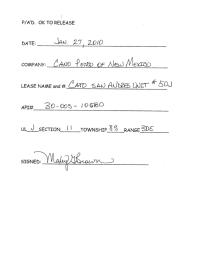 P/A'D. OK TO RELEASE
DATE: JAN 27, 2010
COMPANY: CANO PETRO OF NEW MEXICO
LEASE NAME and #: CATO SAN ANDRES UNIT # 50J
API# 30-005-10680
UL J SECTION 11 TOWNSHIP 8S RANGE 30E
SIGNED: Mary Brown